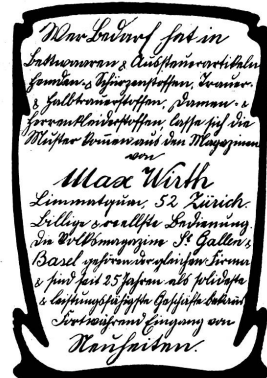 Wer Bedarf hat in
Bettwaaren & Aussteuerartikeln
Hemden- & Schürzenstoffen, Trauer-
& Halbtrauerstoffen, Damen- &
Herrenkleiderstoffen, lasse sich die
Muster kommen aus den Magazinen
von
Max Wirth
Limmatquai, 52 Zürich.
Billige & reellste Bedienung.
Die Volksmagazine St. Gallen &
Basel gehören der gleichen Firma
& sind seit 25 Jahren als solideste
& leistungsfähigste Geschäfte bekannt
Fortwährend Eingang von
Neuheiten.